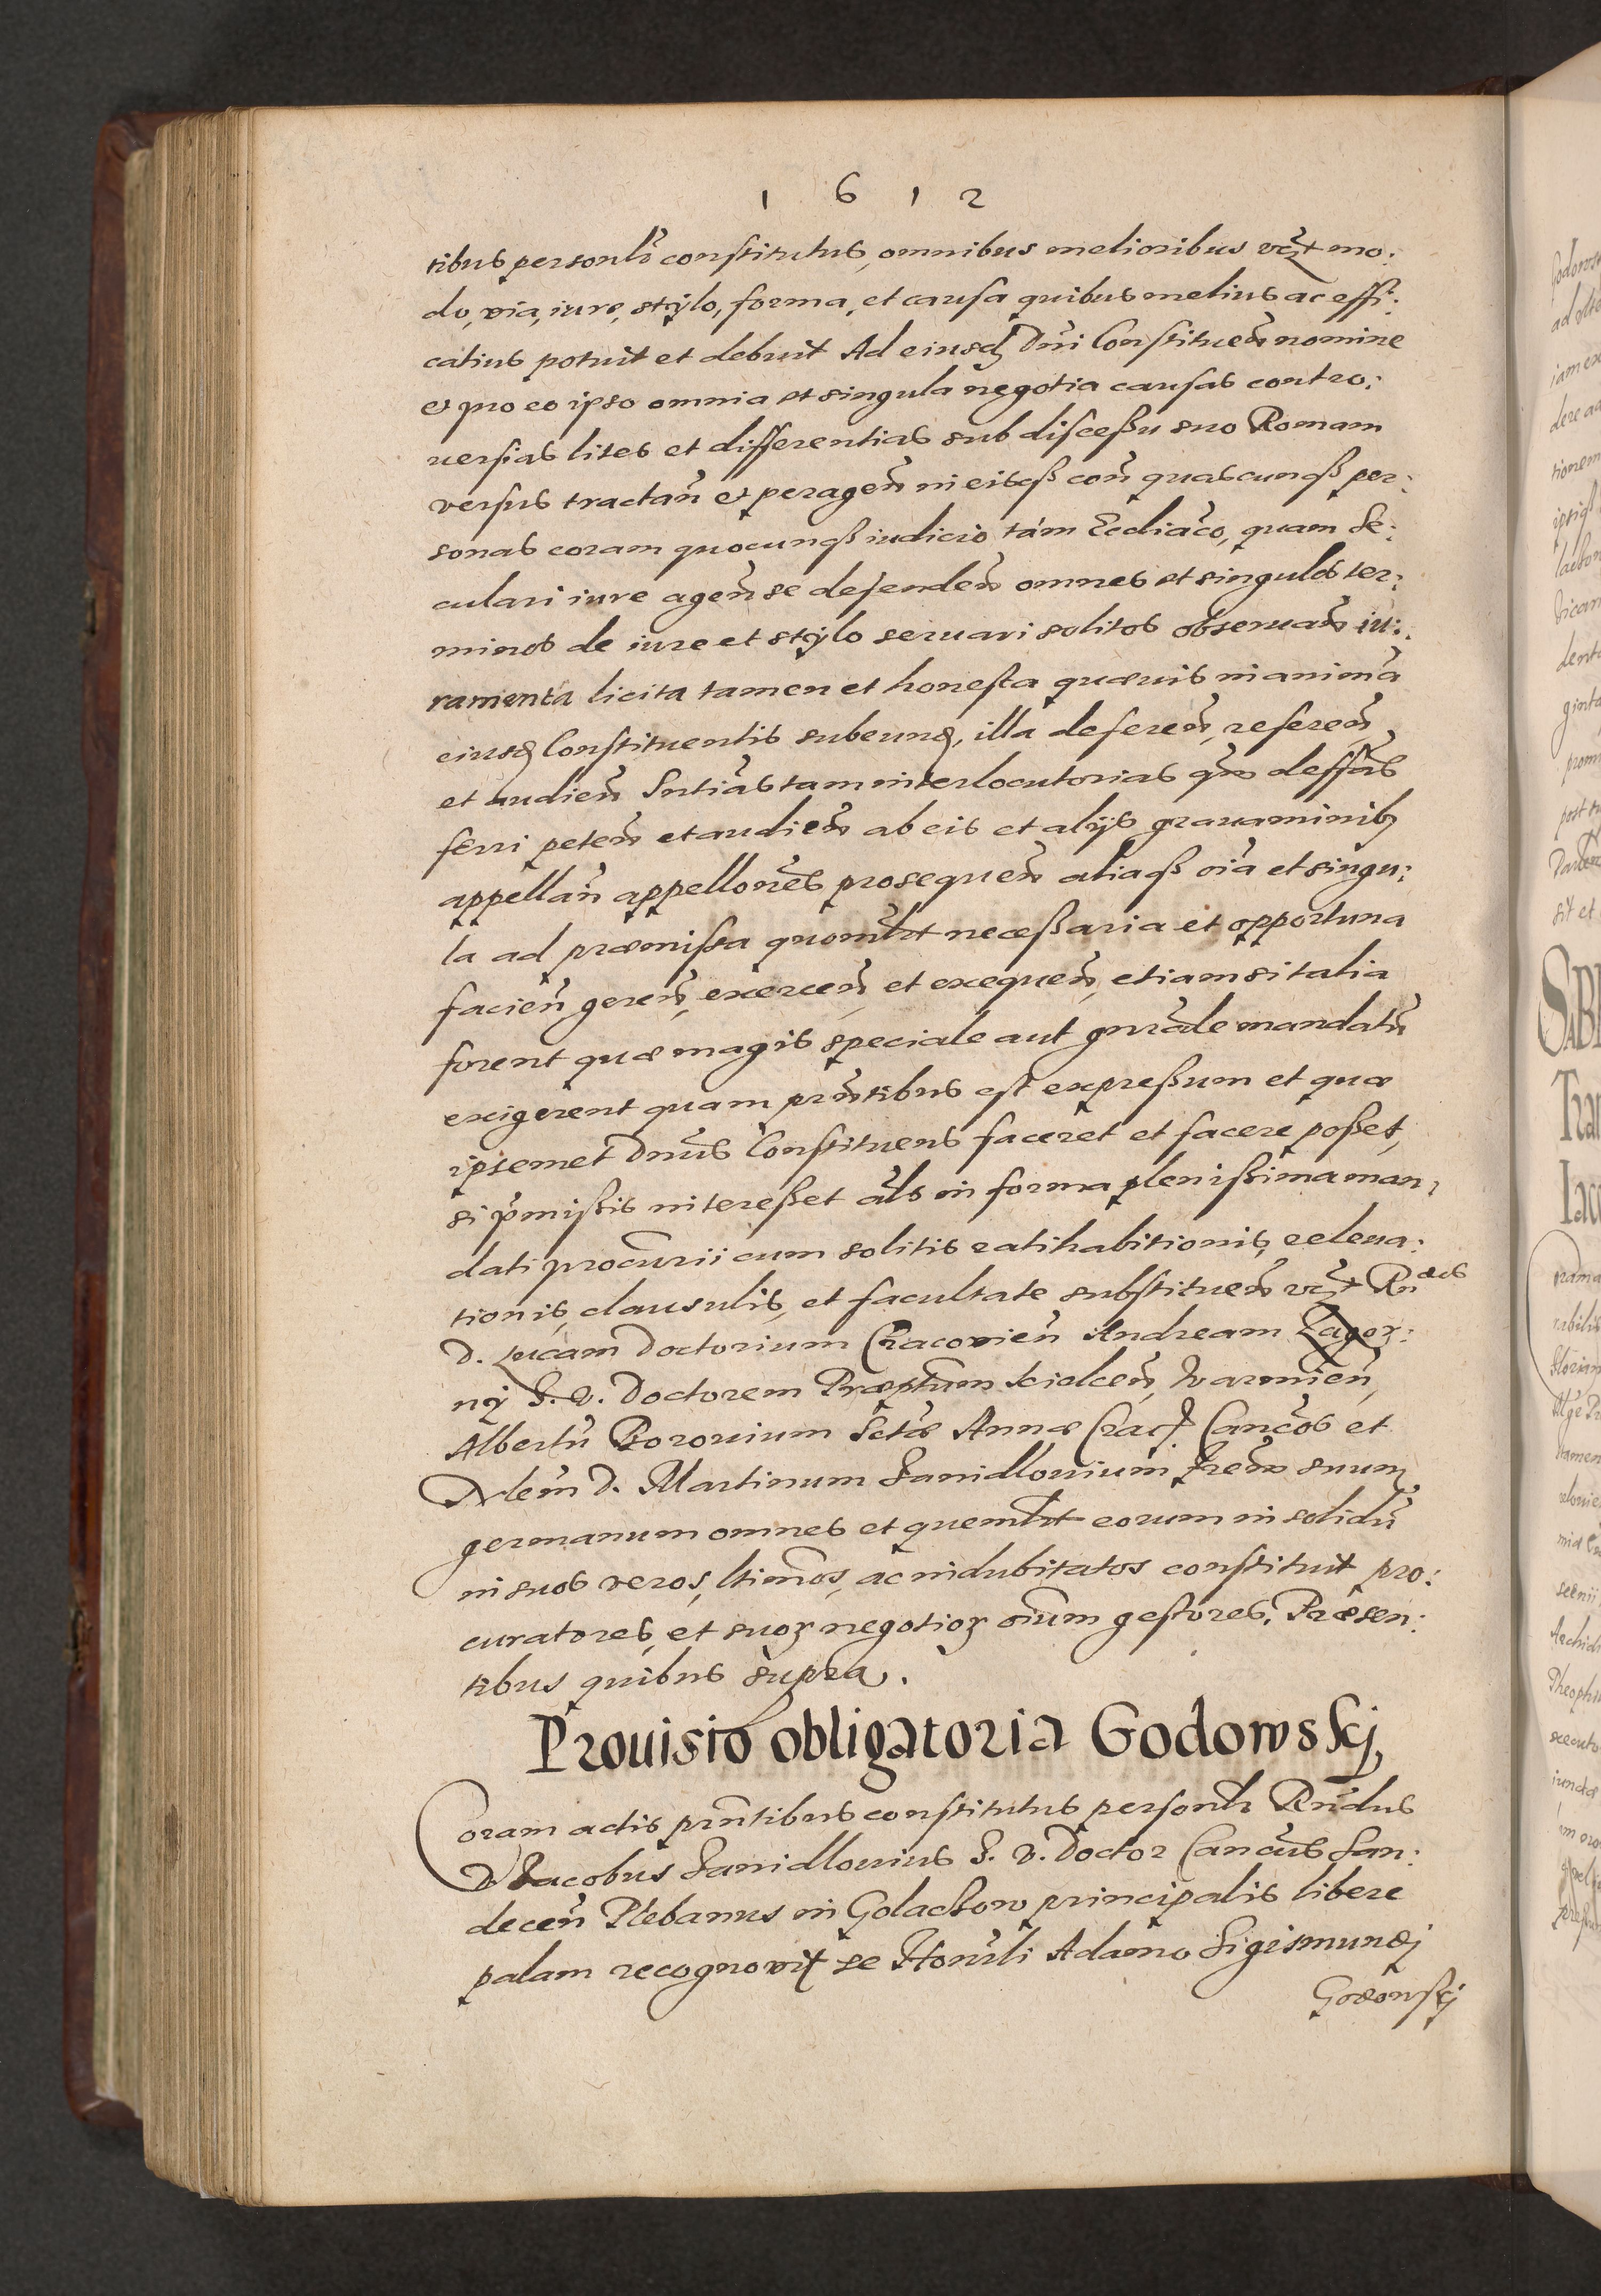 1 6 1 2
tibus personlr̃ constitutus, omnibus melioribus vc̃t mo:
do, via, iure, stÿlo, forma, et causa quibus melius ac effi:
catius potuit et debuit Ad eiusd Dñi Constitueñ nomine
et pro eo ipso omnia et singula negotia causas contro:
uersias lites et differentias sub discessu suo Romam
versus tractañ et perageñ in eisqß coñ quascunqß per:
sonas coram quocunqß iudicio tàm Eccliãco, quam Se:
culari iure ageñ se defendeñ omnes et singulos ter:
minos de iure et stÿlo seruari solitos obseruañ iu:
ramenta licita tamen et honesta quæuis in animã
eiusd Constituentis subeund, illa defereñ, refereñ
et audieñ Sntiãs tam interlocutorias qm̃ deffãs
ferri peteñ et audieñ ab eis et alijs grauaminib
appellañ appellonẽs prosequeñ aliaqß oĩa et singu:
la ad præmissa quomlt̃ necessaria et opportuna
facieñ gereñ, exerceñ, et exequeñ, etiamsi talia
forent quæ magis speciale aut gnrãle mandatũ
exigerent quam prñtibus est expressum et quæ
ipsemet Dnũs Constituens faceret et facere posset,
si p̃missis interesset als̃ in forma plenissima man:
dati procurĩi cum solitis ratihabitionis, releua:
tionis, clausulis, et facultate substitueñ vc̃t Rndos
D. Lucam Doctorium Cracovieñ Andream Zagor:
nÿ S. V. Doctorem Præptum̃ Kielceñ, Warmieñ,
Albertũ Borouium Sctæ̃ Annæ Crac Cancõs et
Ven D. Martinum Janidlouium frem̃ suum
germanum omnes et quemlt̃ eorum in solidũ
in suos veros, ltimõs, ac indubitatos constituit pro:
curatores, et suor negotior oĩum gestores, Præsen:
tibus quibus supra.
Prouisio obligatoria Godowskj,
Coram actis prñtibus constitutus personlr̃ Rndus
D Jacobus Janidlouius J. V. Doctor Cancũs San:
deceñ Plebanus in Golaczow principalis libere
palam recognovit se Honrli Adamo Sigismundj
Godowskj